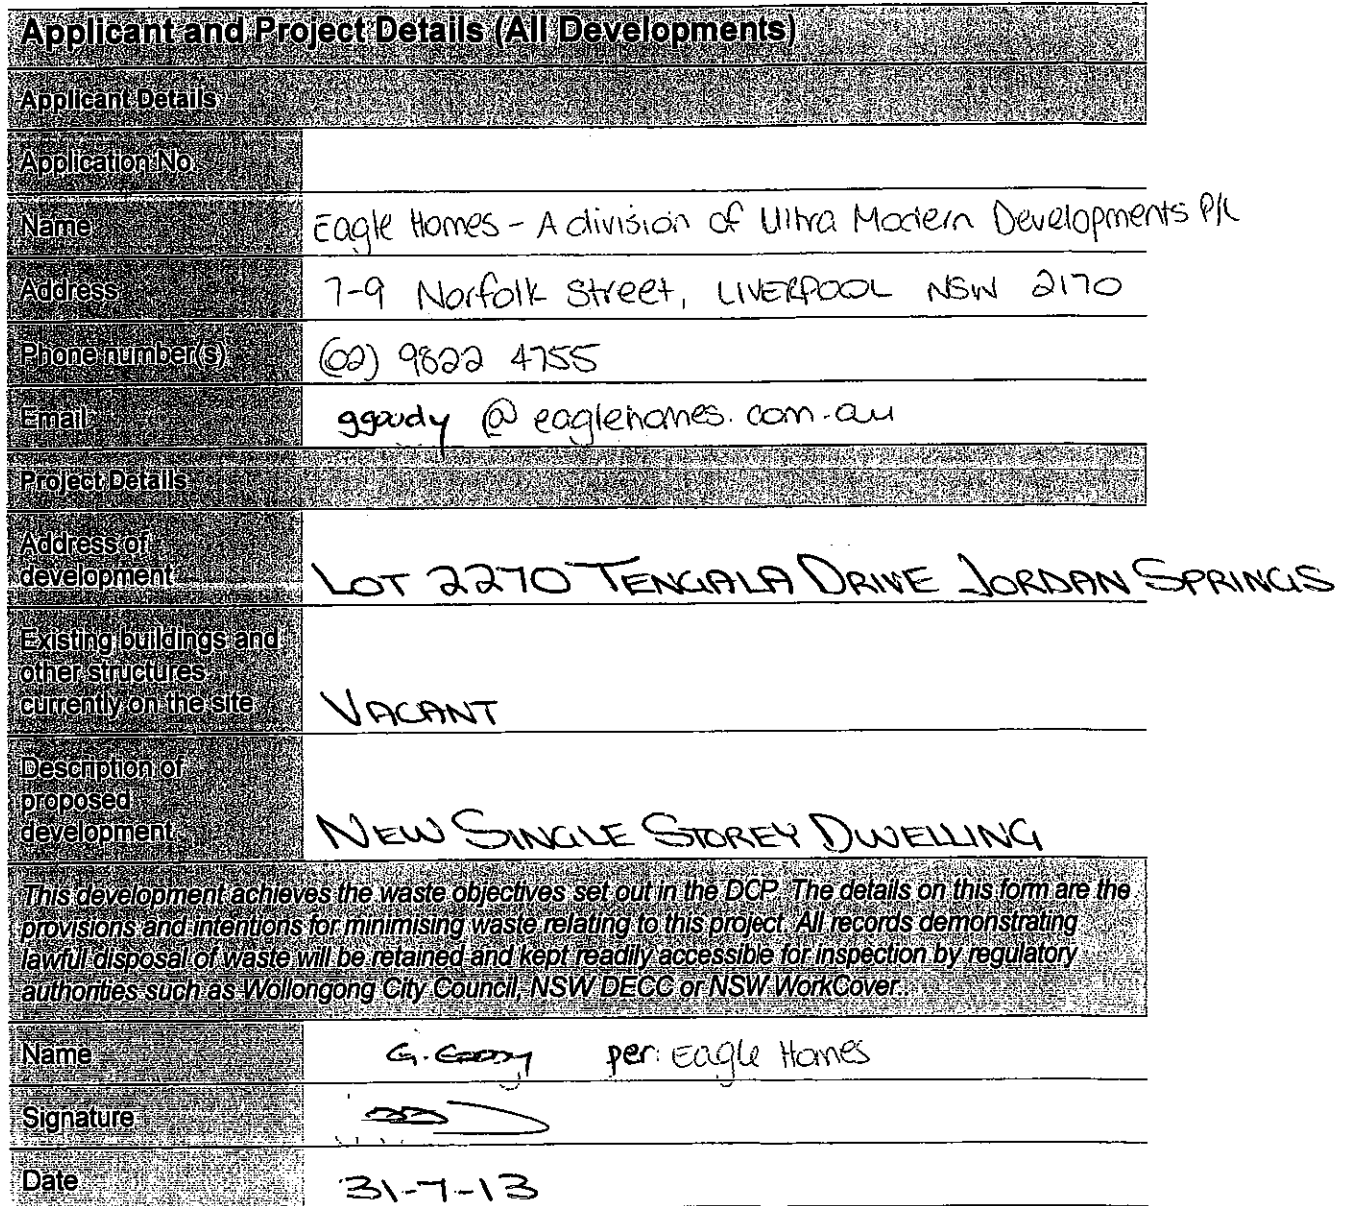 Applicant and Project Details (All Developments)
Applicant Details
Application No.
Name Eagle Homes - A division of Ultra Modern Developments P/L
Address 7-9 Norfolk Street, LIVERPOOL NSW 2170
Phone number(s) (02) 9822 4755
Email ggoudy @ eaglehomes.com.au
Project Details
Address of
development LOT 2270 TENGALA DRIVE JORDAN SPRINGS
Existing buildings and
other structures
currently on the site VACANT
Description of
proposed
development NEW SINGLE STOREY DWELLING
This development achieves the waste objectives set out in the DCP. The details on this form are the
provisions and intentions for minimising waste relating to this project. All records demonstrating
lawful disposal of waste will be retained and kept readily accessible for inspection by regulatory
authorities such as Wollongong City Council, NSW DECC or NSW WorkCover.
Name G. per: Eagle Homes
Signature
Date 31-7-13